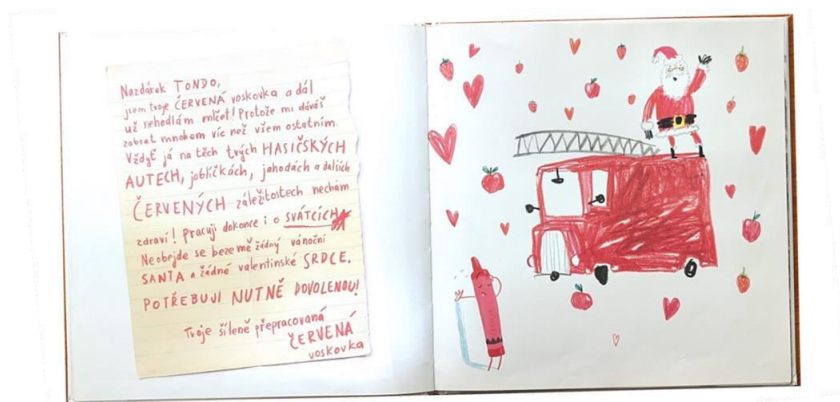 Nazdárek TONDO,
jsem tvoje ČERVENÁ voskovka a dál
už nehodlám mlčet! Protože mi dáváš
zabrat mnohem víc než všem ostatním.
Vždyť já na těch tvých HASIČSKÝCH
AUTECH, jablíčkách, jahodách a dalších
ČERVENÝCH záležitostech nechám
zdraví! Pracuji dokonce i o SVÁTCÍCH
Neobejde se beze mě žádný vánoční
SANTA a žádné valentinské SRDCE.
POTŘEBUJI NUTNĚ DOVOLENOU!
Tvoje šíleně přepracovaná
ČERVENÁ
voskovka